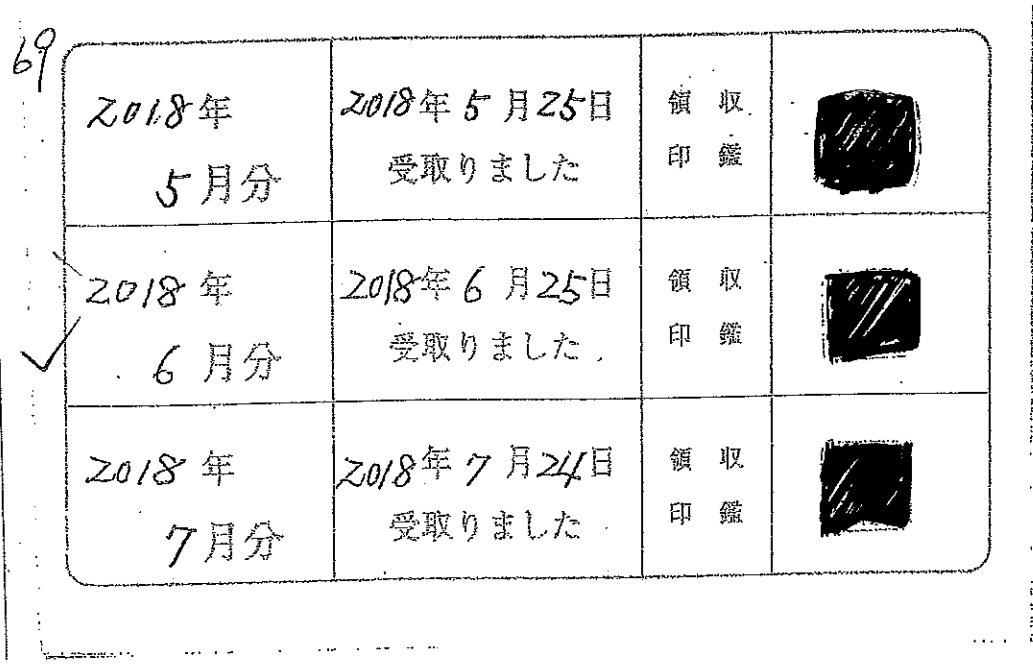 69
2018年
5月分
2018年5月25日
受取りました
領収
印鑑
2018年
6月分
2018年6月25日
受取りました
領収
印鑑
2018年
7月分
2018年7月24日
受取りました
領収
印鑑